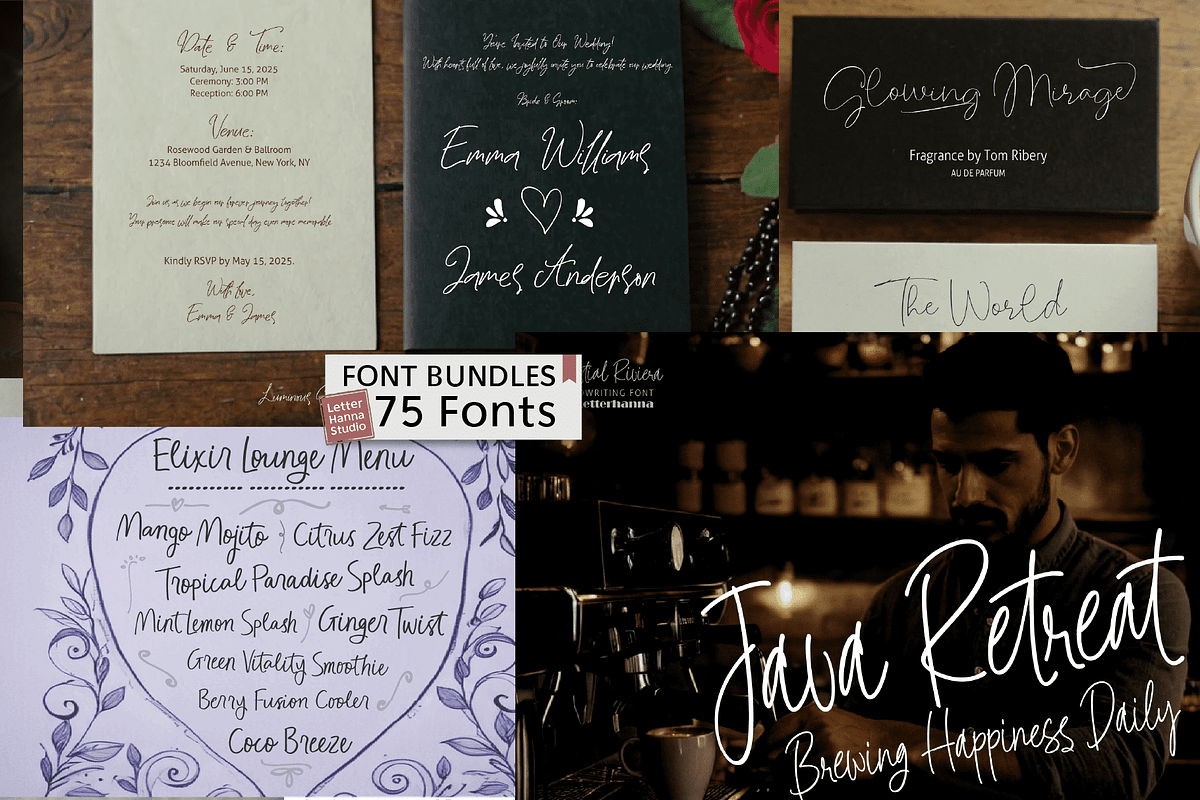 Date & Time:
Saturday, June 15, 2025
Ceremony: 3:00 PM
Reception: 6:00 PM
Venue:
Rosewood Garden & Ballroom
1234 Bloomfield Avenue, New York, NY
Join us as we begin our forever journey together!
Your presence will make our special day even more memorable.
Kindly RSVP by May 15, 2025.
With love,
Emma & James
Luminous
You're Invited to Our Wedding!
With hearts full of love, we joyfully invite you to celebrate our wedding.
Bride & Groom:
Emma Williams
James Anderson
Glowing Mirage
Fragrance by Tom Ribery
AU DE PARFUM
The World
FONT BUNDLES
75 Fonts
Letter
Hanna
Studio
Riviera
FONT
letterhanna
Elixir Lounge Menu
Mango Mojito Citrus Zest Fizz
Tropical Paradise Splash
Mint Lemon Splash Ginger Twist
Green Vitality Smoothie
Berry Fusion Cooler
Coco Breeze
Java Retreat
Brewing Happiness Daily